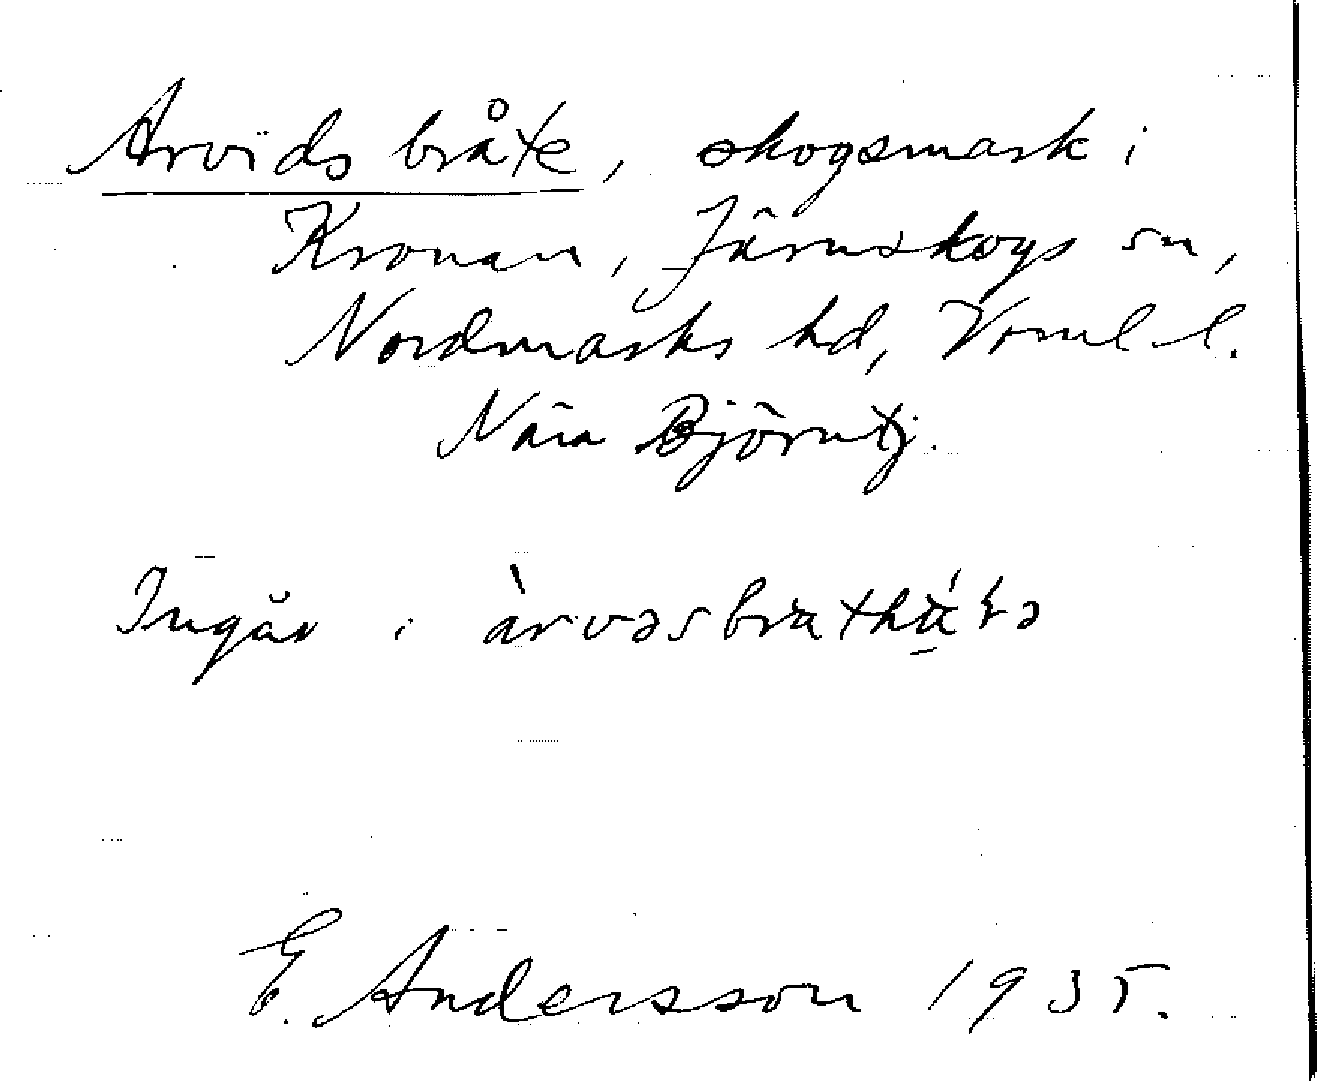 Arvids bråte, skogsmark i
Kronan, Järnskogs sn,
Nordmarks hd, Vrml l.
Nära Björntj.
Ingår i àrvəsbråthä́ʈə
E. Andersson 1935.